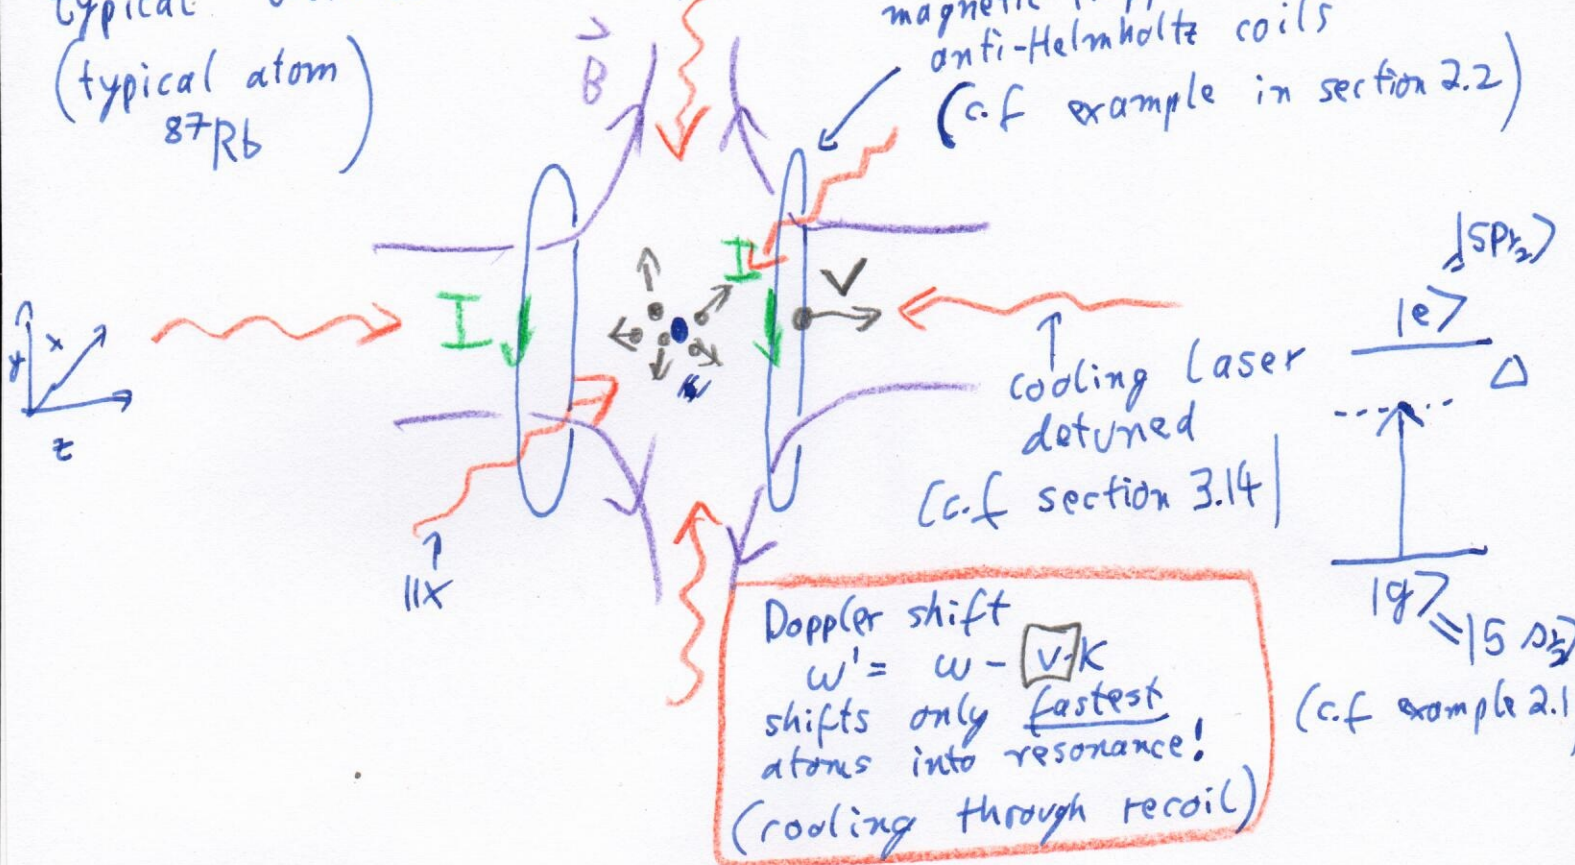 typical
(typical atom
⁸⁷Rb)
B⃗
magnetic
anti-Helmholtz coils
(c.f example in section 2.2)
I
I
V
y
x
z
cooling laser
detuned
(c.f section 3.14)
|e⟩
Δ
|g⟩
||x
Doppler shift
ω' = ω - v·k
shifts only fastest
atoms into resonance!
(cooling through recoil)
(c.f example 2.1